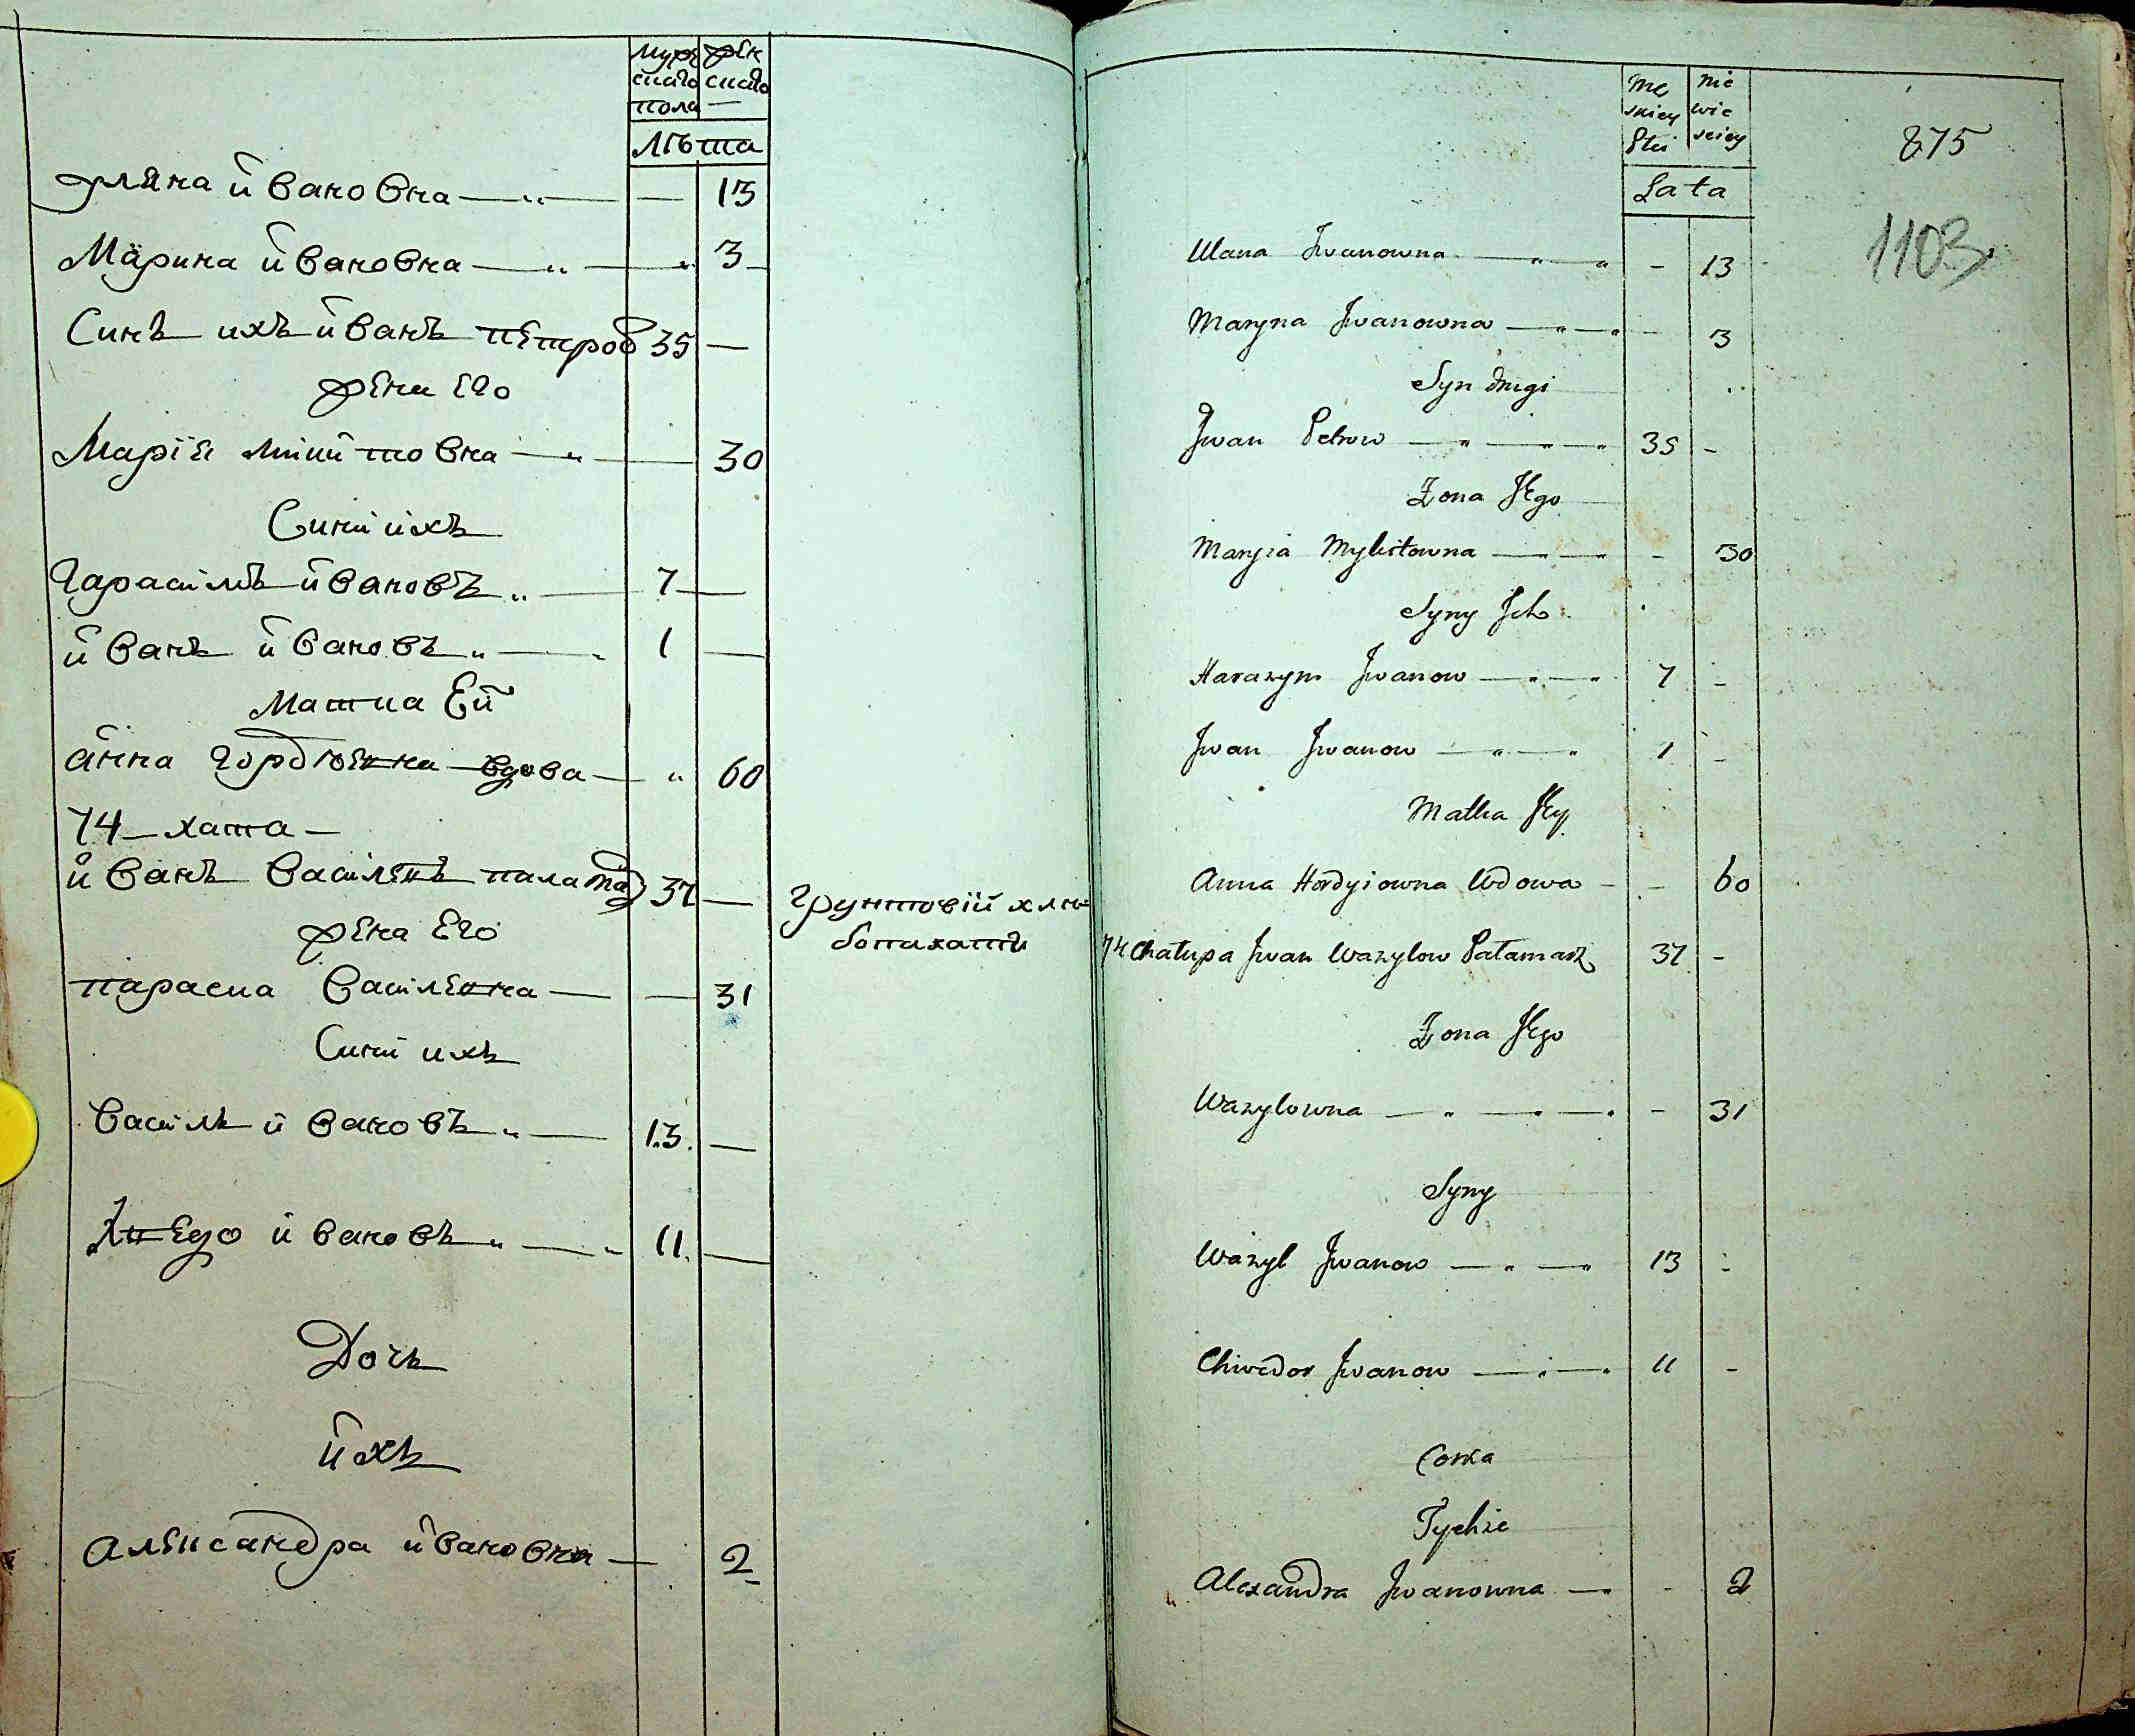 муж жен
скаго скаго
пола —
лѣта
уляна ивановна — „ — — 13
Марина ивановна — „ — „ 3
Синъ ихъ иванъ петров 35 —
жена его
Марія микитовна — „ — 30
Сини ихъ
Гарасимъ ивановъ „ — 7 —
иванъ ивановъ „ — „ 1 —
Матка Ей
анна гордюевна вдова — „ 60
74 — хата —
иванъ василевъ паламар 37 —
грунтовій хлѣ
бопахатъ
жена его
параска василевна — — 31
Сини ихъ
василь ивановъ „ — 13. —
Хведо ивановъ „ — „ 11. —
Дочь
ихъ
александра ивановна — 2
me nie
skiey wie
Płci sciey
Lata
875
1103
Ulana Jwanowna — „ — „ - 13
Maryna Jwanowna — „ — „ - 3
Syn drugi
Jwan Petrow — „ — „ — „ 35 -
Zona Jego
Maryia Mykitowna — „ — „ - 30
Syny Jch
Harazym Jwanow — „ — „ 7 -
Jwan Jwanow — „ — „ 1 -
Matka Jey
Anna Hordyiowna Wdowa - - 60
74 Chałupa Jwan Wazylow Pałamarz 37 -
Zona Jego
Wazylowna — „ — „ — „ - 31
Syny
Wazyl Jwanow — „ — „ 13 -
Chwedor Jwanow — „ — „ 11 -
Corka
Tychze
Alexandra Jwanowna — „ - 2